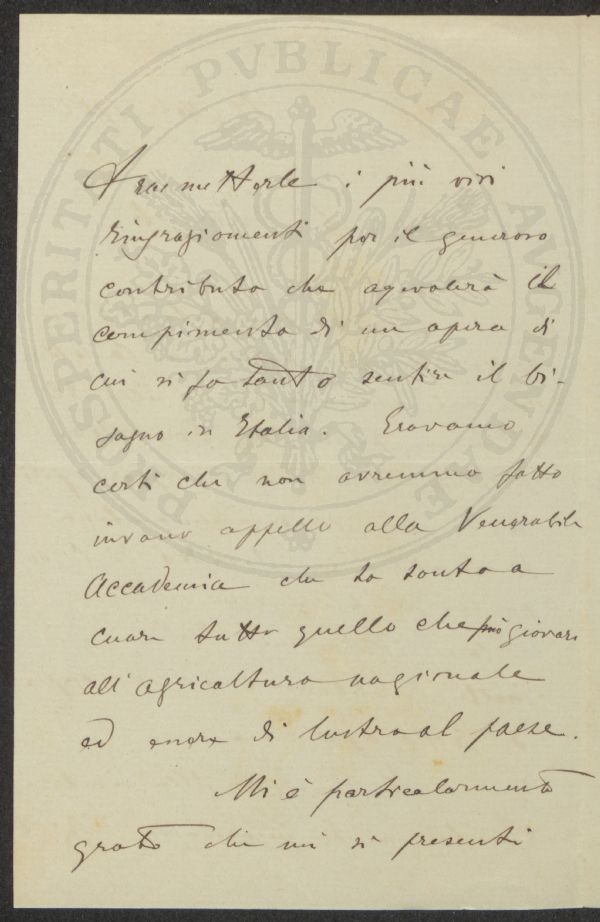 Trasmetterle i più vivi
ringraziamenti per il generoso
contributo che agevolerà il
compimento di un opera di
cui si fa tanto sentire il bi-
sogno in Italia. Eravamo
certi che non avremmo fatto
invano appello alla Venerabile
Accademia che ha tanto a
cuore tutto quello che può giovare
all'agricoltura nazionale
ed essere di lustro al paese.
Mi è particolarmente
grato che mi si presenti
PROSPERITATI PVBLICAE AVGENDAE